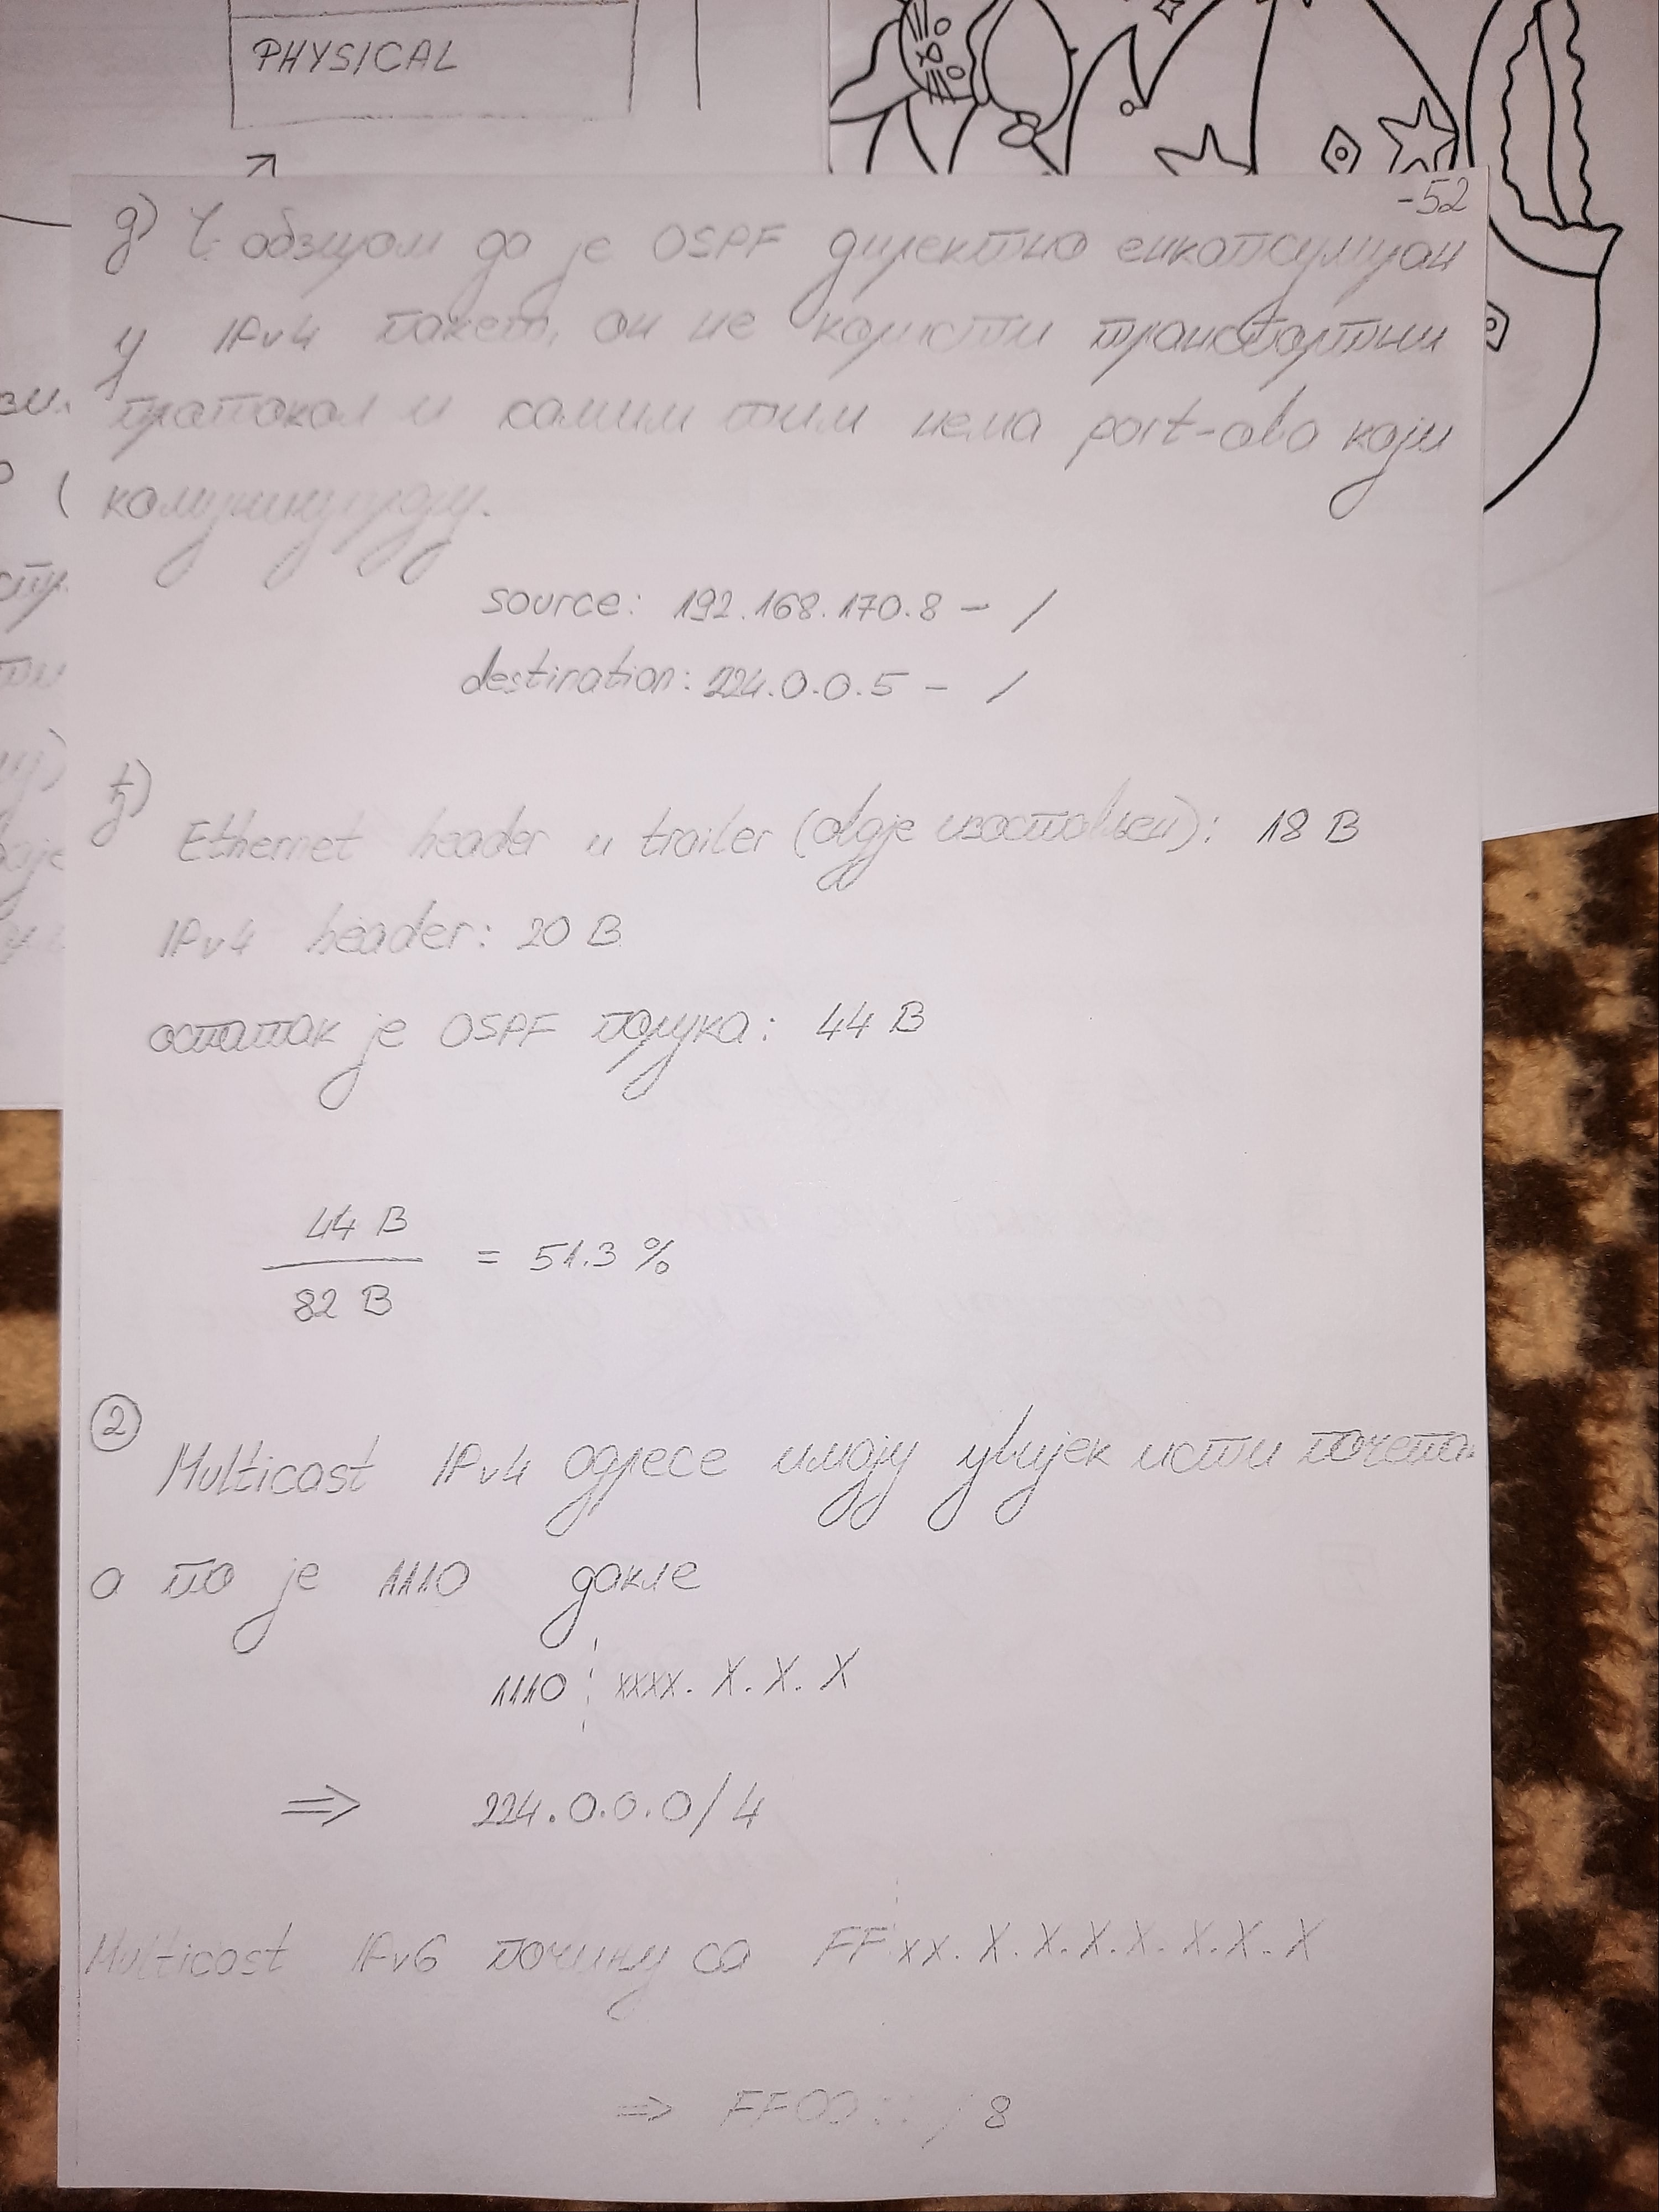 PHYSICAL
-52
д) С обзиром да је OSPF директно енкапсулиран
у IPv4 пакет, он не користи транспортни
протокол и самим тим нема port-ова који
комуницирају.
source: 192.168.170.8 - /
destination: 224.0.0.5 - /
ђ)
Ethernet header и trailer (овдје изостављен): 18 B
IPv4 header: 20 B
остатак је OSPF порука: 44 B
44 B
= 51.3 %
82 B
2
Multicast IPv4 адресе имају увијек исти
а то је 1110 дакле
1110 xxxx. X. X. X
⇒ 224.0.0.0/4
Multicast IPv6 почињу са FF xx. X. X. X. X. X. X. X
⇒ FF00:: / 8